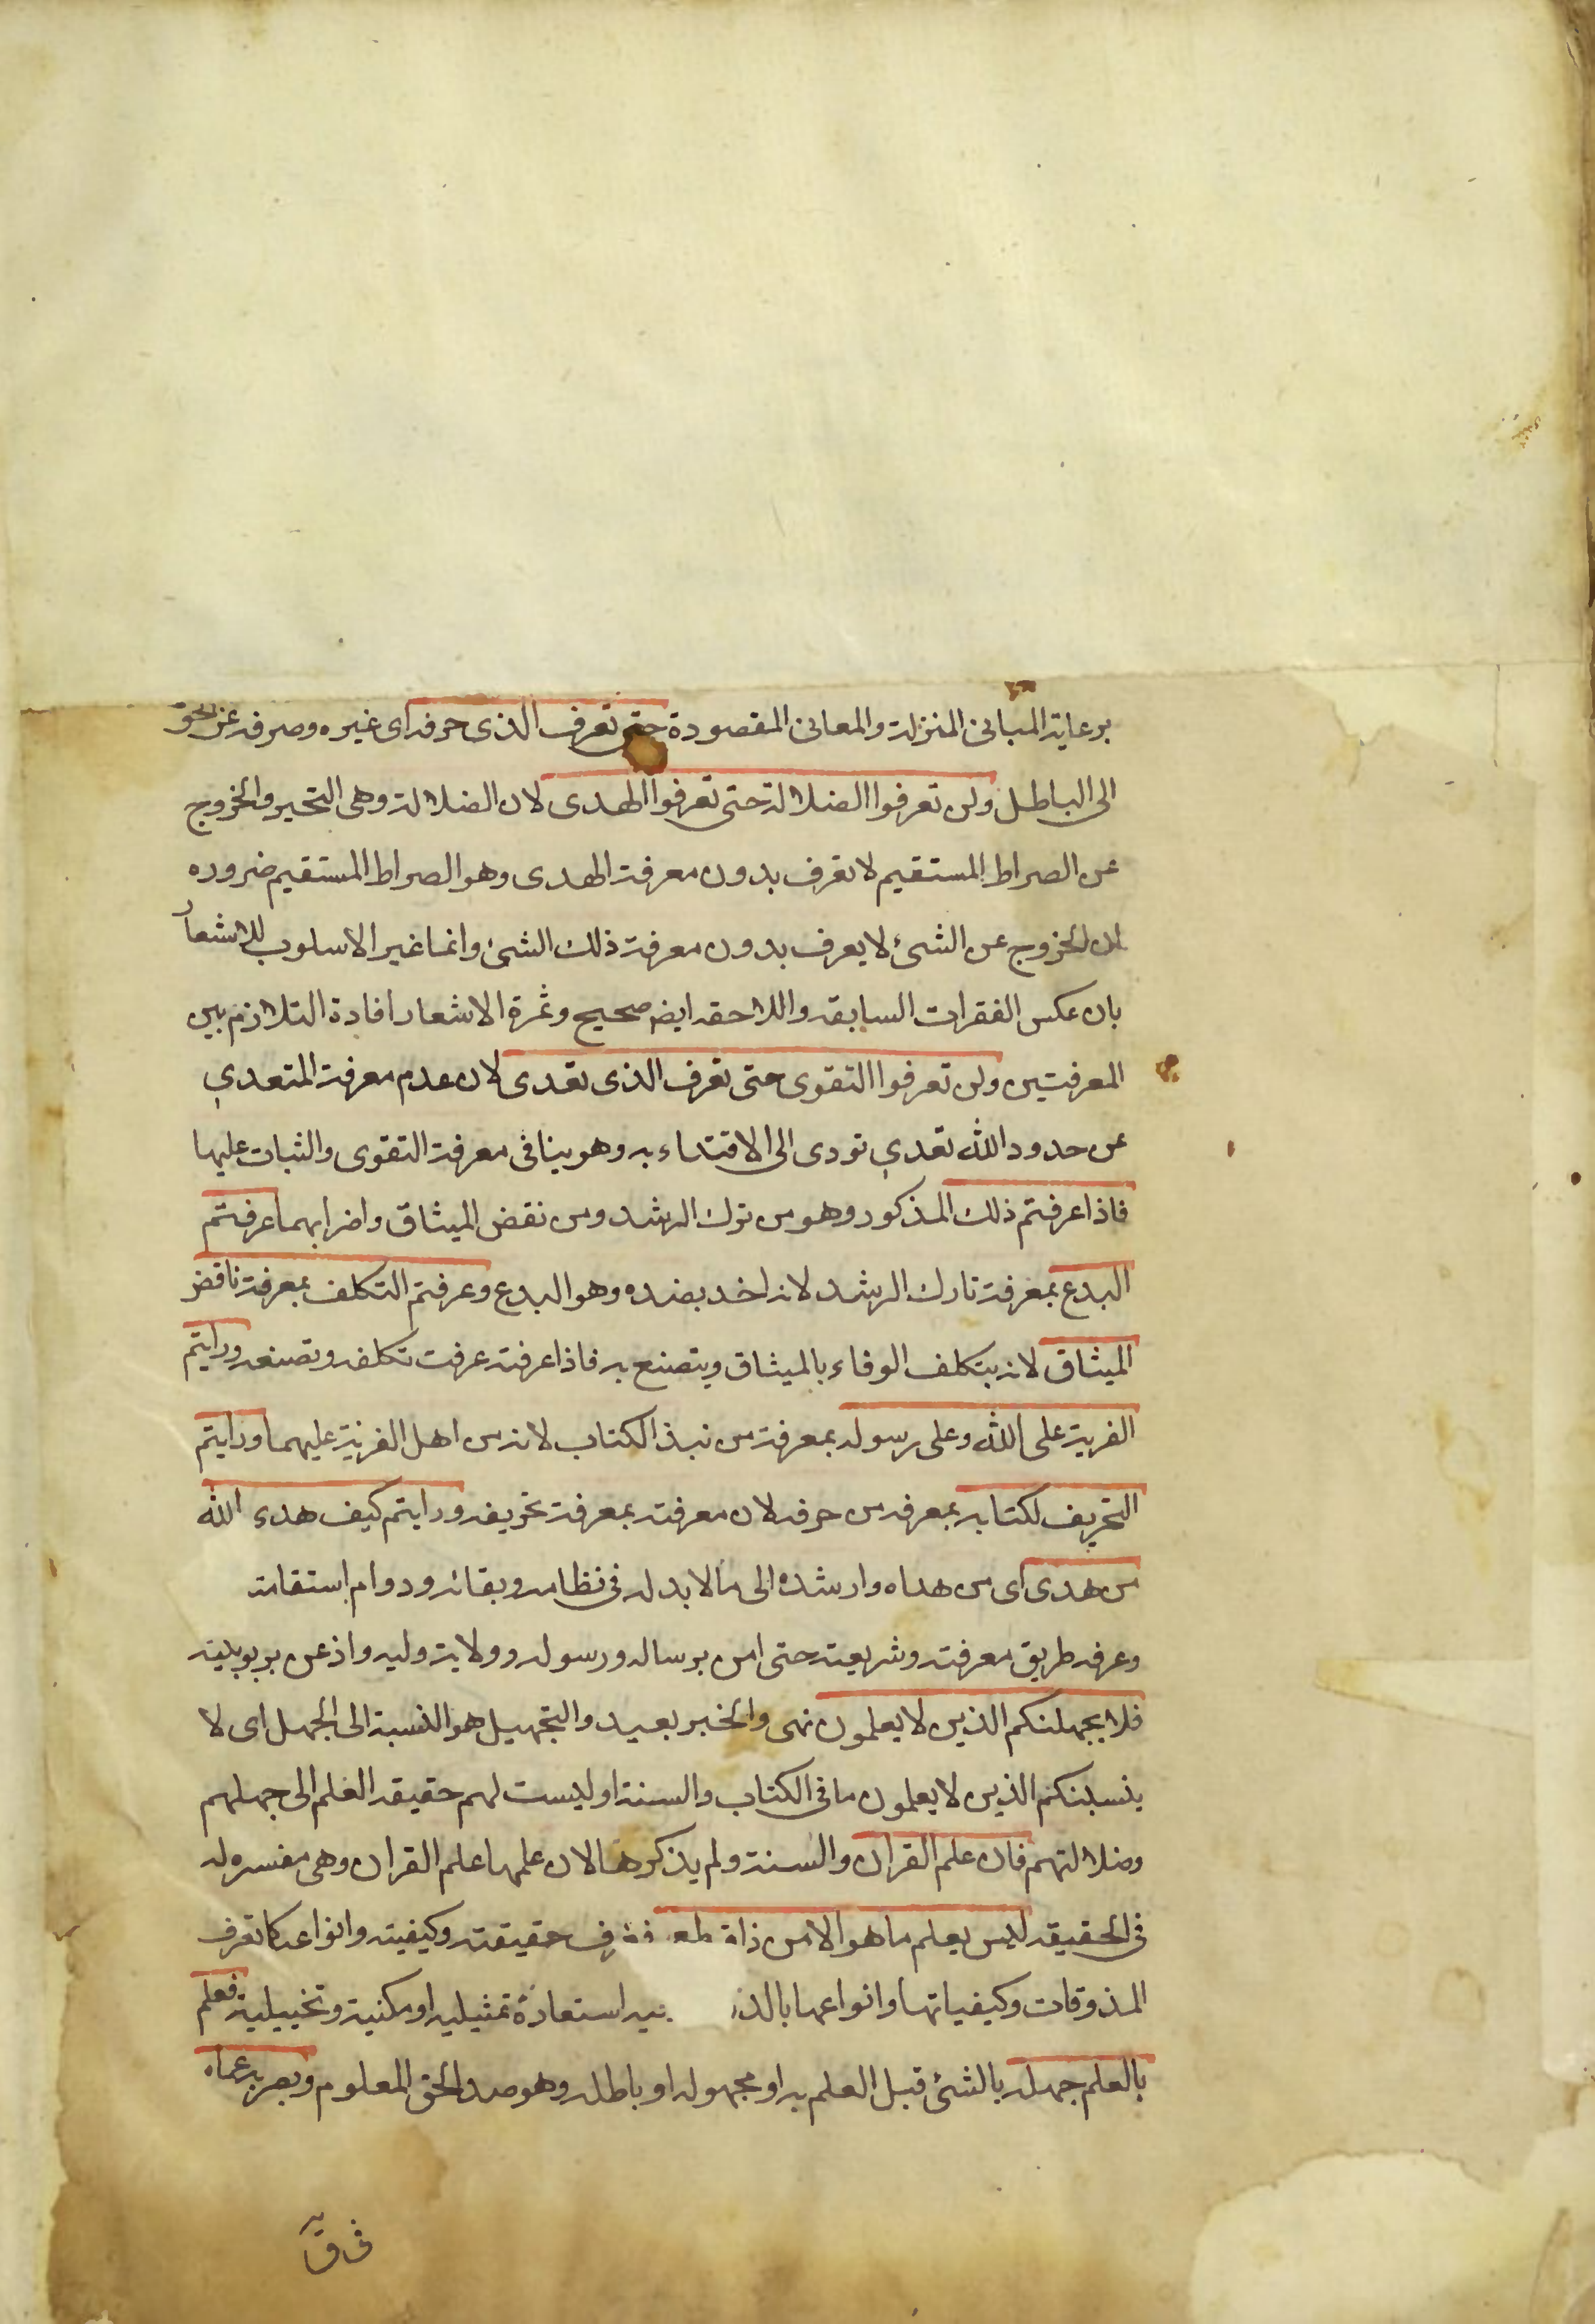 برعاية المبانى المنزلة والمعانى المقصودة حتى تعرف الذى حرفه اى غيره وصرفه عن الحق
الى الباطل ولن تعرفوا الضلالة حتى تعرفوا الهدى لان الضلالة وهى التحير والخروج
عن الصراط المستقيم لا تعرف بدون معرفة الهدى وهو الصراط المستقيم ضروره
ان الخروج عن الشئ لا يعرف بدون معرفة ذلك الشئ وانما غير الاسلوب للاشعار
بان عكس الفقرات السابقه واللاحقه ايضا صحيح وثمرة الاشعار افادة التلازم بين
المعرفتين ولن تعرفوا التقوى حتى تعرف الذى تعدى لان عدم معرفة المتعدي
عن حدود الله تعدي تودى الى الاقتداء به وهو ينافى معرفة التقوى والثبات عليها
فاذا عرفتم ذلك المذكور وهو من ترك الرشد ومن نقض الميثاق واضرابهما عرفتم
البدع بمعرفة تارك الرشد لانه اخد بضده وهو البدع وعرفتم التكلف بمعرفة ناقض
الميثاق لانه يتكلف الوفاء بالميثاق ويتصنع به فاذا عرفته عرفت تكلفه وتصنعه ورايتم
الفرية على الله وعلى رسوله بمعرفة من نبذ الكتاب لانه من اهل الفرية عليهما ورايتم
التحريف لكتابه بمعرفه من حرفه لان معرفته بمعرفة تحريفه ورايتم كيف هدى الله
من هدى اى من هداه وارشده الى ما لا بد له فى نظامه وبقائه ودوام استقامته
وعرفه طريق معرفته وشريعته حتى امن برساله ورسوله وولاية وليه واذعن بربوبيته
فلا يجهلنكم الذين لا يعلمون نهى والخبر بعيد والتجهيل هو النسبة الى الجهل اى لا
ينسبنكم الذين لا يعلمون ما فى الكتاب والسنة او ليست لهم حقيقه العلم الى جهلهم
وضلالتهم فان علم القران والسنة ولم يذكرها لان علمها علم القران وهى مفسره له
فى الحقيقه ليس يعلم ما هو الا من ذاق طعمه فعرف حقيقته وكيفيته وانواعه كما تعرف
المذوقات وكيفياتها وانواعها بالذ فيه استعارة تمثيليه او مكنية وتخييلية فعلم
بالعلم جهله بالشئ قبل العلم به او مجهوله او باطله وهو ضد الحق المعلوم وبصر به عماه